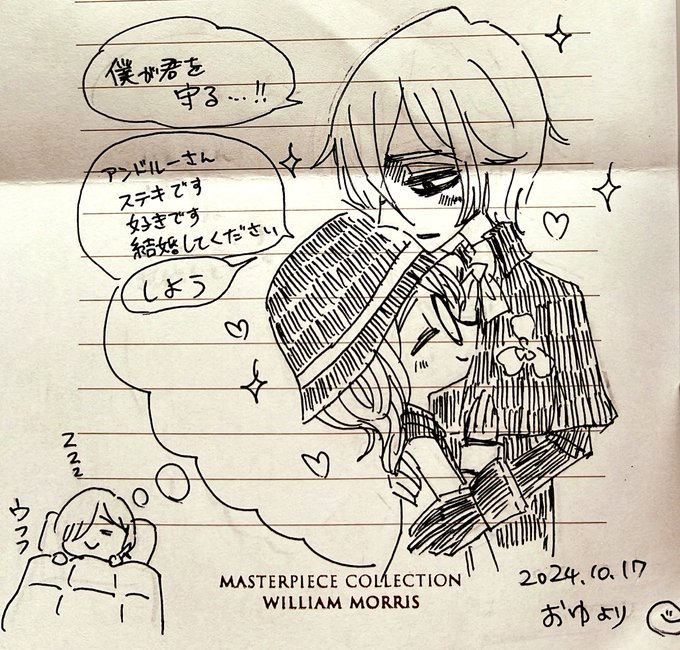 僕が君を
守る…!!
アンドルーさん
ステキです
好きです
結婚してください
しよう
zzz
ウフフ
MASTERPIECE COLLECTION
WILLIAM MORRIS
2024.10.17
おゆより